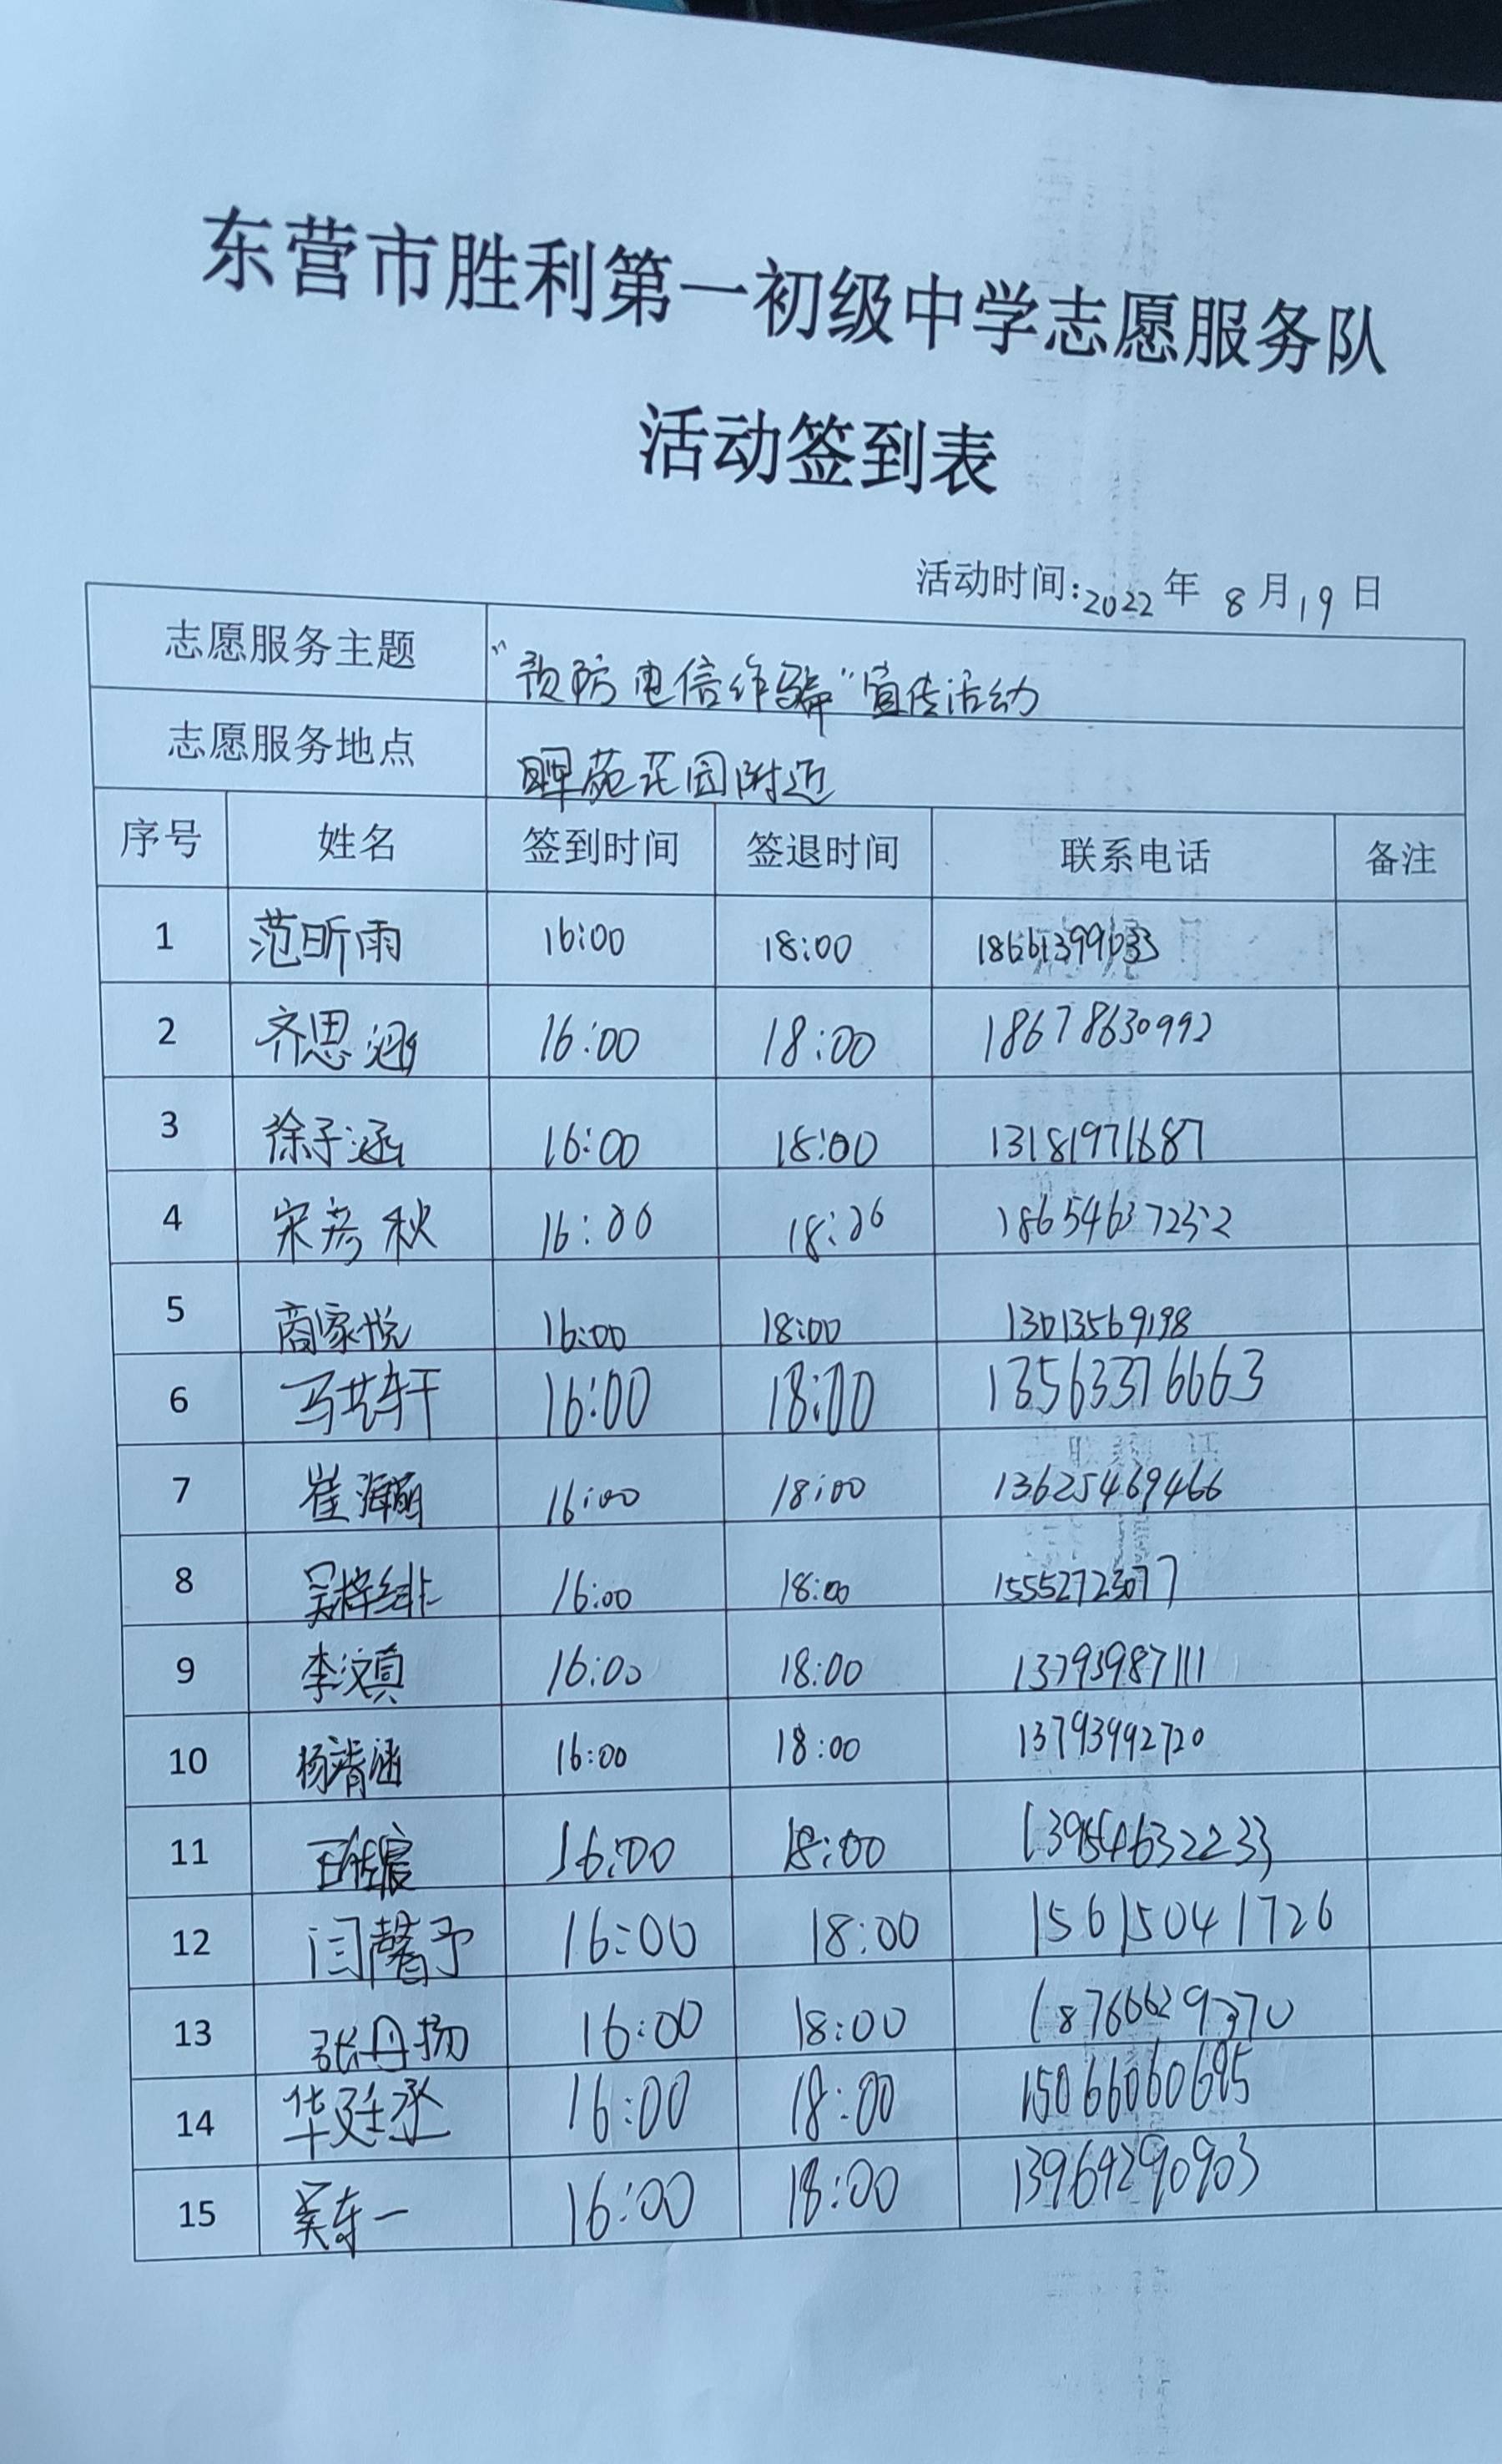 东营市胜利第一初级中学志愿服务队
活动签到表
活动时间:2022年 8月19日
志愿服务主题 "预防电信诈骗"宣传活动
志愿服务地点 晖苑花园附近
序号 姓名 签到时间 签退时间 联系电话 备注
1 范昕雨 16:00 18:00 18661399633
2 齐思涵 16:00 18:00 18678630992
3 徐子涵 16:00 18:00 13181971687
4 宋彦秋 16:00 18:00 18654637232
5 商家悦 16:00 18:00 13013569198
6 马艺轩 16:00 18:00 13563376663
7 崔海 16:00 18:00 13625469466
8 吴梓绯 16:00 18:00 15552723077
9 李汶真 16:00 18:00 13793987111
10 杨清涵 16:00 18:00 13793992720
11 16:00 18:00 13954632233
12 闫馨予 16:00 18:00 15615041726
13 张丹扬 16:00 18:00 18766629370
14 华廷丞 16:00 18:00 15066060695
15 吴东一 16:00 18:00 13964290903